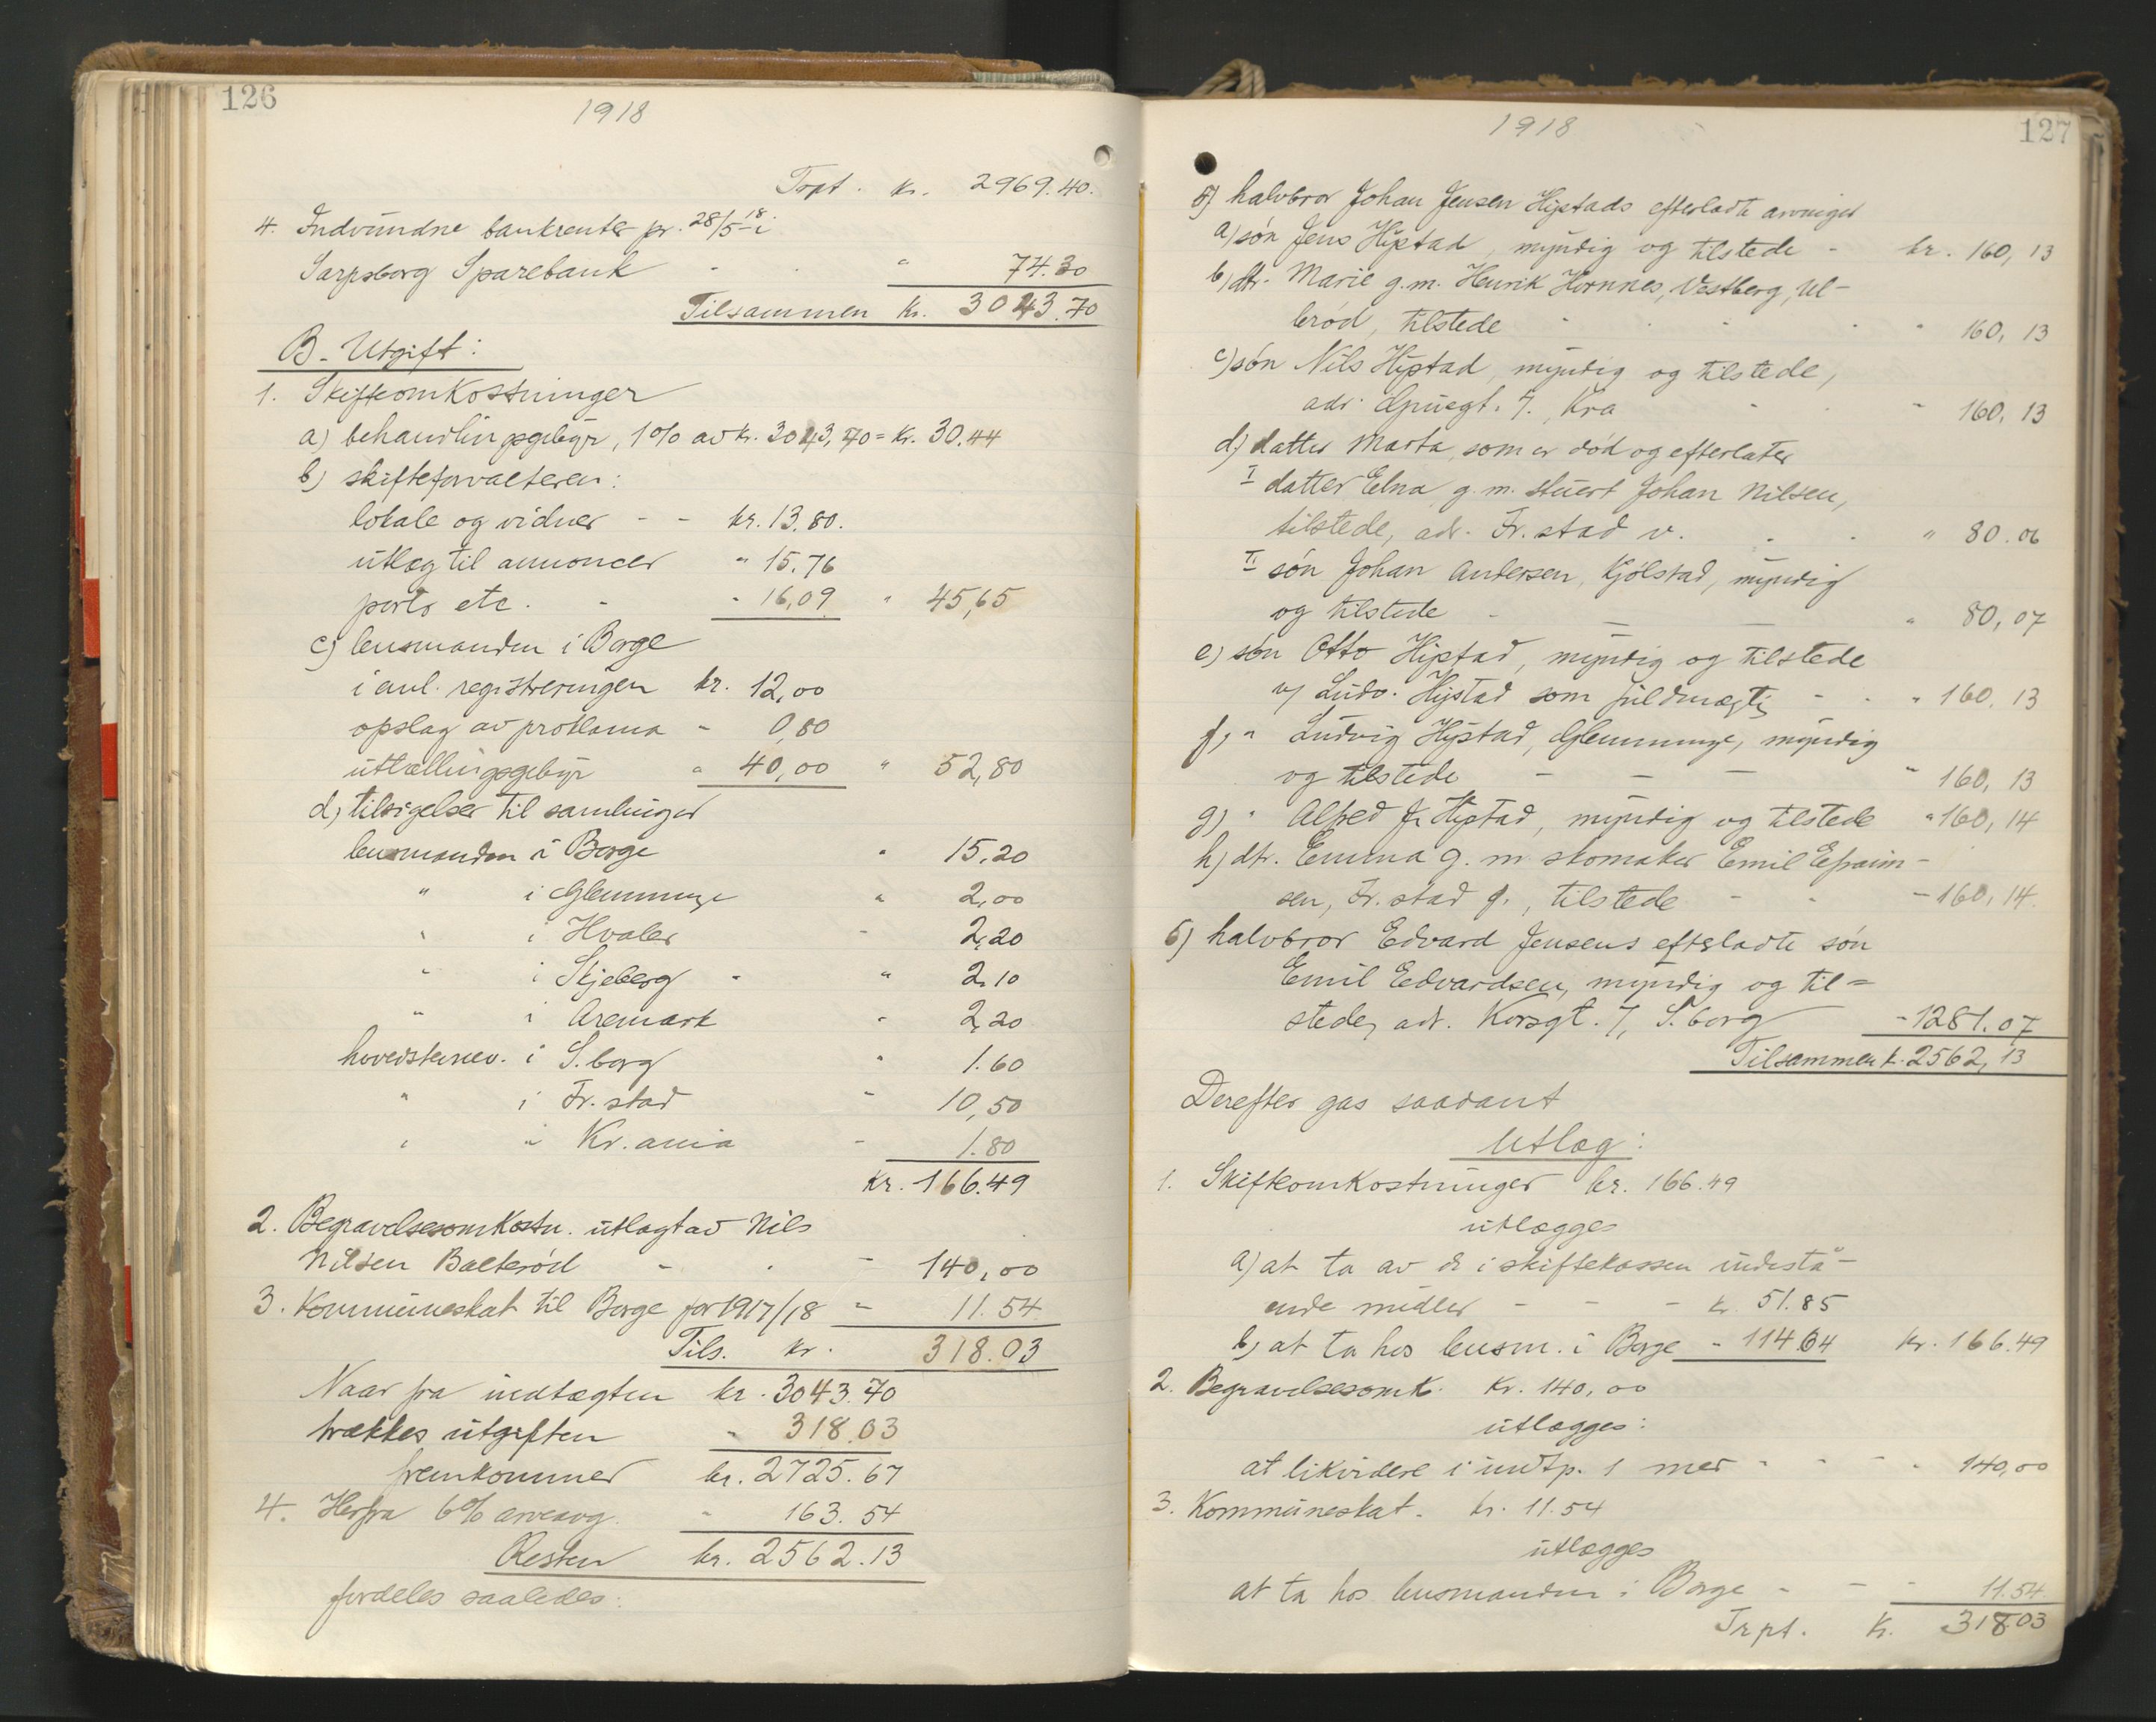 126
1918
Trpt. kr. 2969.40.
4. Indvundne bankrenter pr. 28/5-18 i
Sarpsborg Sparebank " 74.30
Tilsammen kr. 3043.70
B. Utgift:
1. Skifteomkostninger
a) behandlingsgebyr, 1% av kr. 3043,70 = kr. 30.44
b) skifteforvalteren:
lokale og vidner - - kr. 13.80.
utlæg til annoncer " 15.76
porto etc. - " 16,09 " 45,65
c) lensmanden i Borge
i anl. registreringen kr. 12,00
opslag av proklama - 0,80
uttællingsgebyr " 40,00 " 52,80
d) tilsigelser til samlinger
lensmanden i Borge " 15.20
" i Glemminge " 2,00
" i Hvaler - 2,20
" i Skjeberg - " 2.10
" i Aremark - 2,20
hovedstevnev. i S.borg " 1.60
" i Fr.stad - 10,50
" i Kr.ania - 1.80
kr. 166.49
2. Begravelsesomkostn. utlagt av Nils
Nilsen Balterød - - 140,00
3. Kommuneskat til Borge for 1917/18 - 11.54
Tils. kr. 318.03
Naar fra indtægten kr. 3043.70
trækkes utgiften " 318.03
fremkommer kr. 2725.67
4. Herfra 6% arveavg. - 163.54
Resten kr. 2562.13
fordeles saaledes:
1918
127
5) halvbror Johan Jensen Hystads efterladte arvinger
a) søn Jens Hystad, myndig og tilstede - kr. 160,13
b) dtr. Marie g.m. Henrik Hornnes, Vestberg, Ul-
lerød, tilstede " 160,13
c) søn Nils Hystad, myndig og tilstede,
adr. 7, Kra - 160,13
d) datter Marta, som er død og efterlater
I datter Edna g.m. stuert Johan Nilsen,
tilstede, adr. Fr.stad v. " 80.06
II søn Johan Andersen, Kjølstad, myndig
og tilstede - " 80,07
e) søn Otto Hystad, myndig og tilstede
v/ Ludv. Hystad som fuldmægtig - " 160,13
f) " Ludvig Hystad, Glemminge, myndig
og tilstede - " 160,13
g) " Alfred J. Hystad, myndig og tilstede " 160,14
h) dtr. Emma g.m. skomaker Emil Efraim-
sen, Fr.stad g., tilstede - - 160,14.
6) halvbror Edvard Jensens efterladte søn
Emil Edvardsen, myndig og til=
stede, adr. Korsgt. 7, S.borg - 1281.07
Tilsammen k. 2562,13
Derefter gas saadant
Utlæg:
1. Skifteomkostninger kr. 166.49
utlægges
a) at ta av de i skiftekassen indestå-
ende midler - - - kr. 51.85
b) at ta hos lensm. i Borge - 114.64 kr. 166.49
2. Begravelsesomk. kr. 140,00
utlægges:
at likvidere i indtp. 1 mer - - - 140,00
3. Kommuneskat. kr. 11.54
utlægges
at ta hos lensmanden i Borge - - - 11.54.
Trpt. kr. 318.03